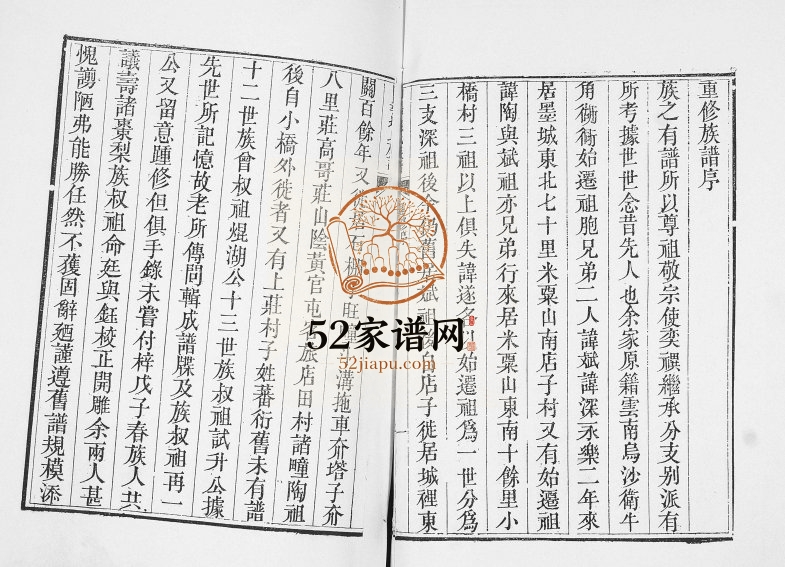 重修族譜序
族之有譜所以尊祖敬宗使奕禩繼承分支别派有
所考據世世念昔先人也余家原籍雲南烏沙衛牛
角衚衕始遷祖胞兄弟二人諱斌諱深永樂二年來
居墨城東北七十里米粟山南店子村又有始遷祖
諱陶與斌祖亦兄弟行來居米粟山東南十餘里小
橋村三祖以上俱失諱遂各以始遷祖爲一世分爲
三支深祖後今仍舊居斌祖後自店子徙居城裡東
關百餘年又徙 石棚 旺疃 溝拖車夼塔子夼
八里莊高哥莊山陰黃官屯 旅店田村諸疃陶祖
後自小橋外徙者又有上莊村子姓蕃衍舊未有譜
十二世族曾叔祖焜湖公十三世族叔祖試升公據
先世所記憶故老所傳問輯成譜牒及族叔祖再一
公又留意踵修但俱手錄未嘗付梓戊子春族人共
議壽諸棗梨族叔祖命廷與鈺校正開雕余兩人甚
愧謭陋弗能勝任然不獲固辭廼謹遵舊譜規模添
52家谱网
52jiapu.com